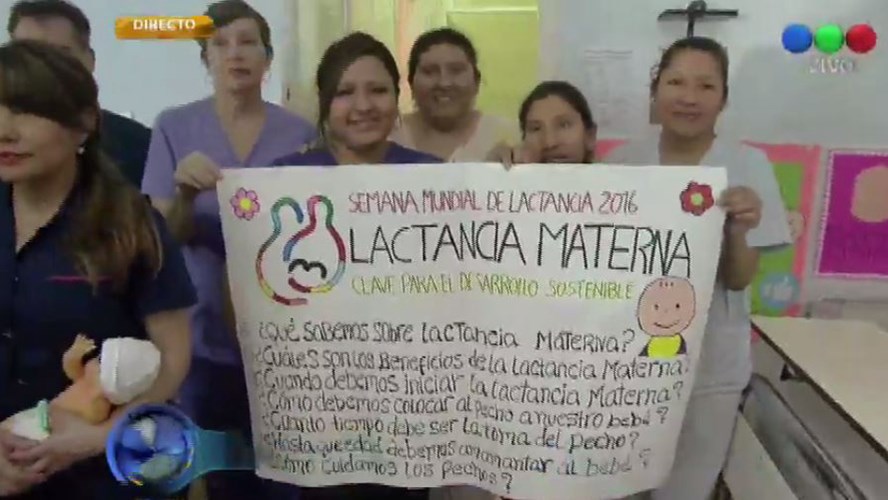 DIRECTO
VIVO
SEMANA MUNDIAL DE LACTANCIA 2016
LACTANCIA MATERNA
CLAVE PARA EL DESARROLLO SOSTENIBLE
¿QUÉ SABEMOS SOBRE LACTANCIA MATERNA?
¿CUÁLES SON LOS BENEFICIOS DE LA LACTANCIA MATERNA?
¿CUANDO DEBEMOS INICIAR LA LACTANCIA MATERNA?
¿CÓMO DEBEMOS COLOCAR AL PECHO A NUESTRO BEBÉ?
¿CUANTO TIEMPO DEBE SER LA TOMA DEL PECHO?
¿HASTA QUE EDAD DEBEMOS AMAMANTAR AL BEBÉ?
¿CÓMO CUIDAMOS LOS PECHOS?